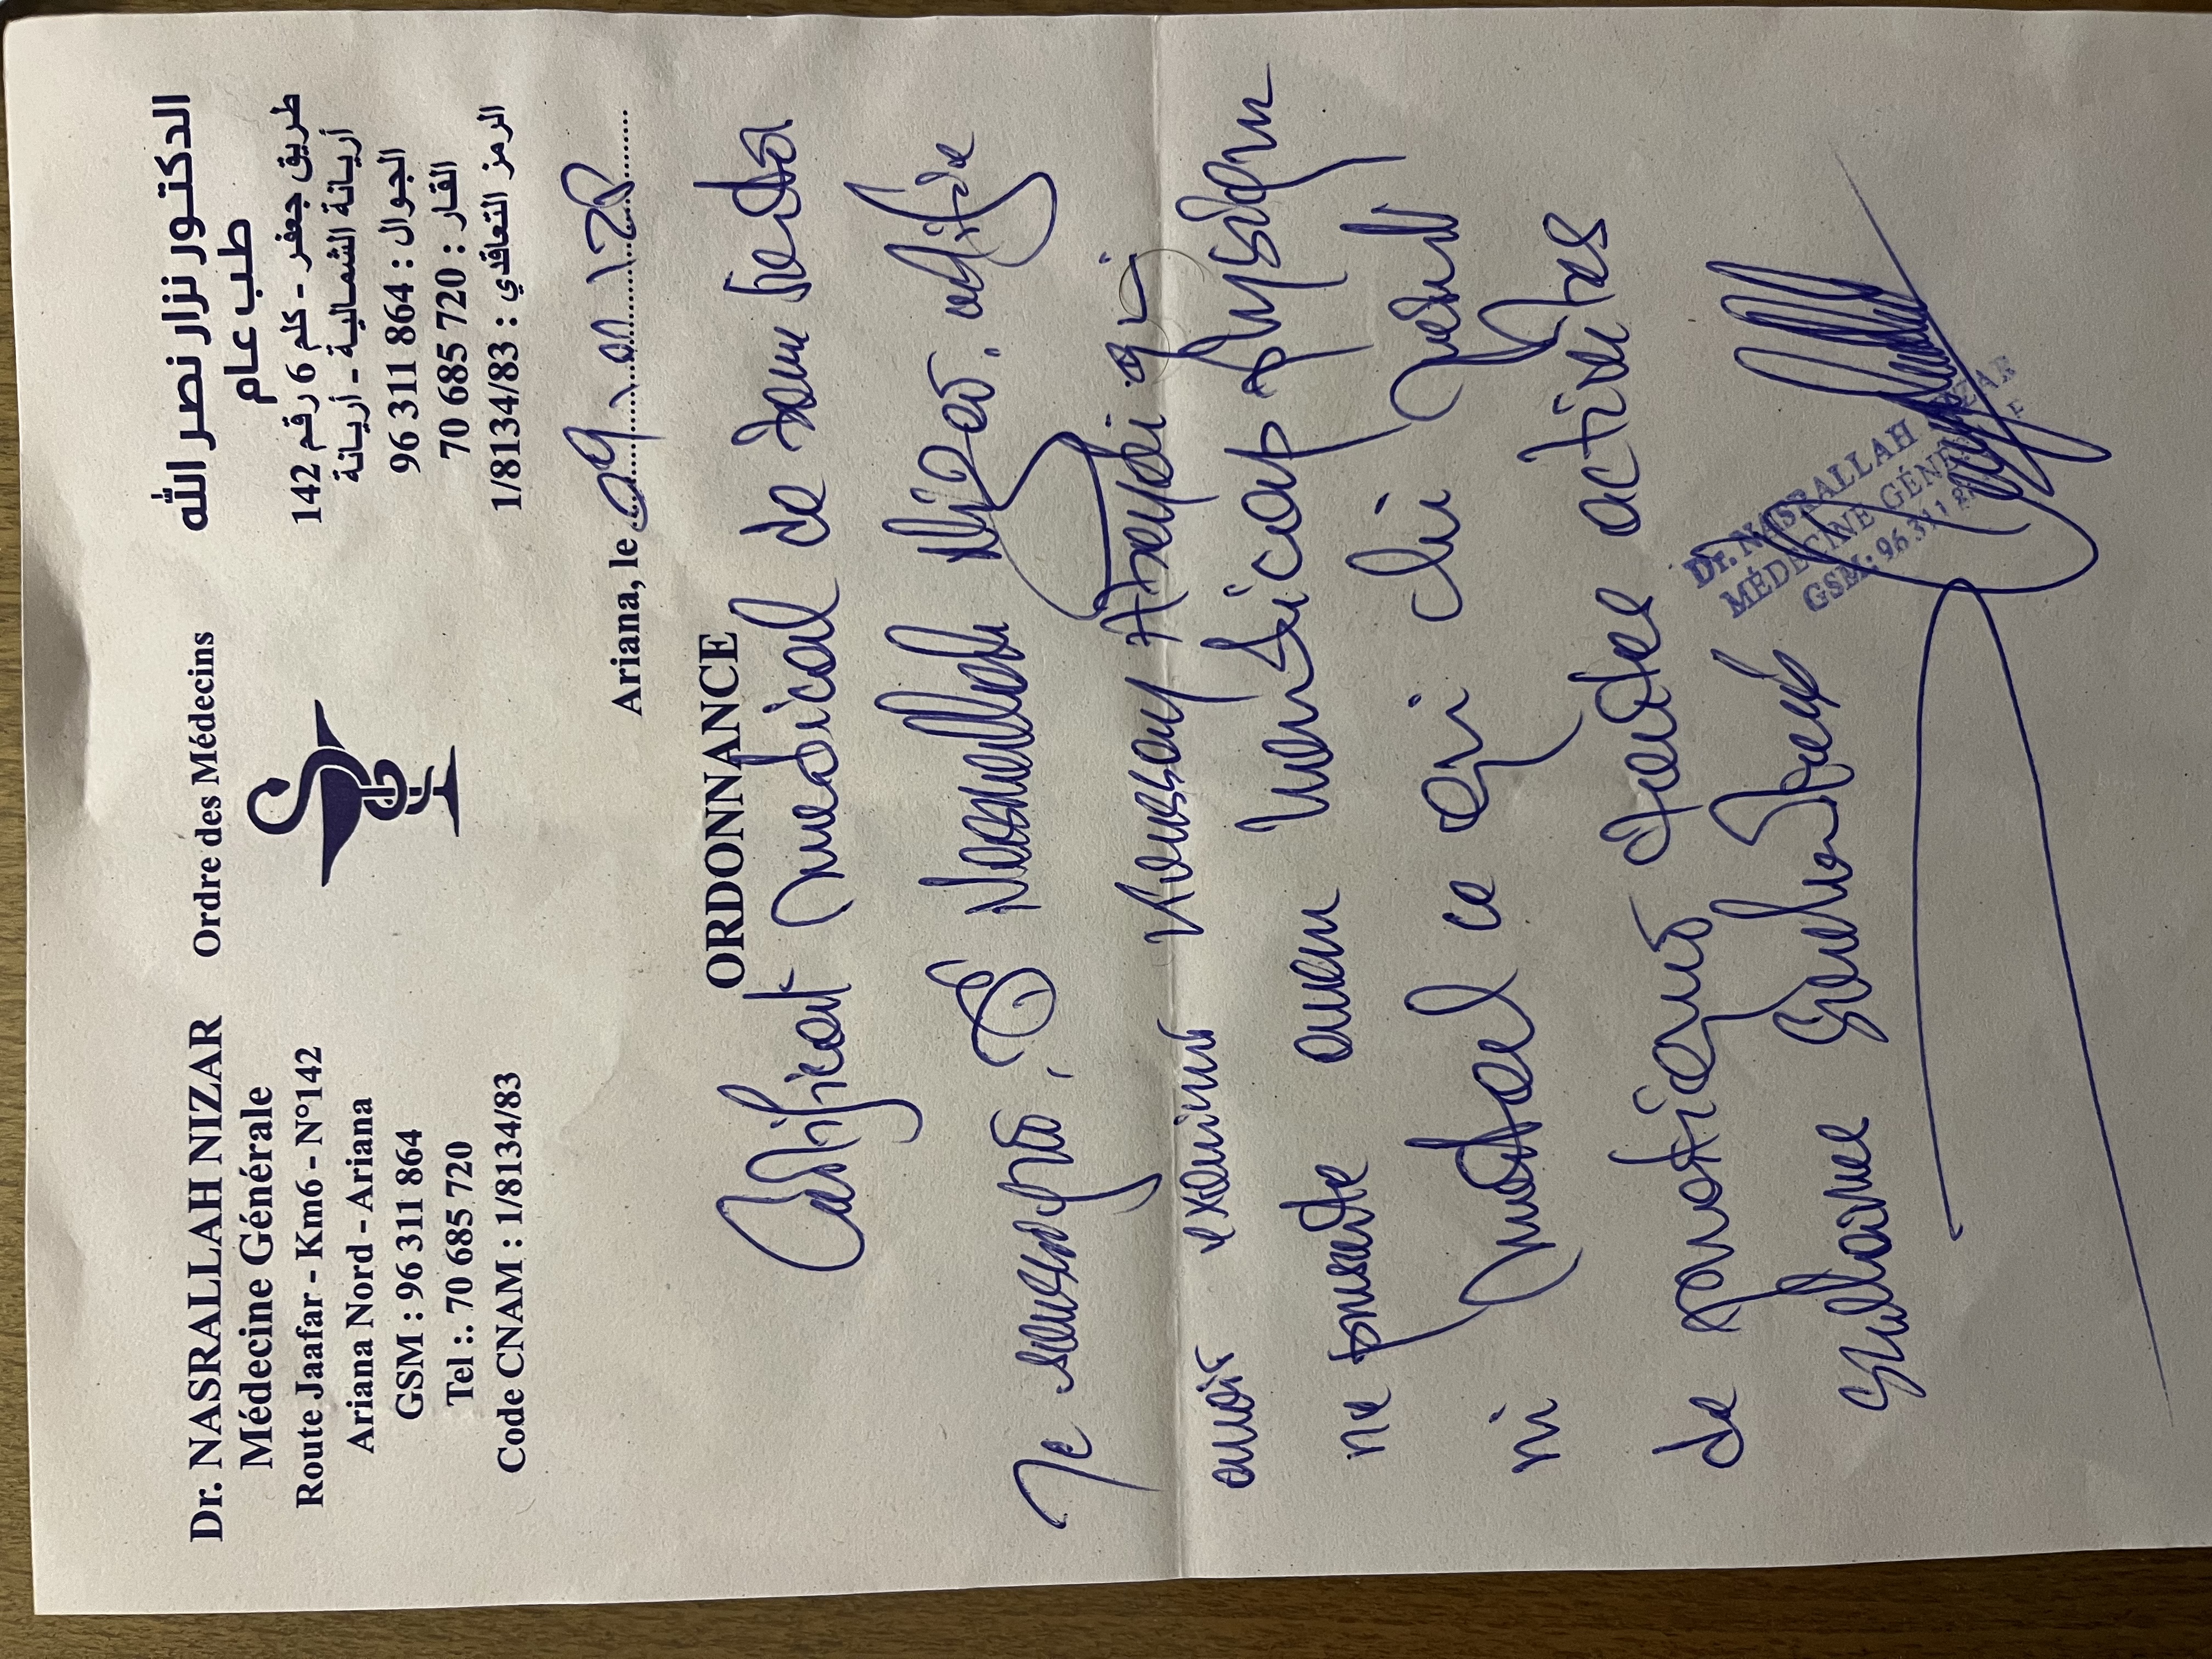 Dr. NASRALLAH NIZAR
Médecine Générale
Route Jaafar - Km6 - N°142
Ariana Nord - Ariana
GSM : 96 311 864
Tel :. 70 685 720
Code CNAM : 1/8134/83
Ordre des Médecins
الدكتور نزار نصر الله
طب عام
طريق جعفر - كلم 6 رقم 142
أريانة الشمالية - أريانة
الجوال : 864 311 96
القار : 720 685 70
الرمز التعاقدي : 1/8134/83
Ariana, le
ORDONNANCE
Certificat médical de bonne santé
Je soussigné, Dr Nasrallah Nizar. certifie
avoir examiné qui
ne présente aucun handicap physique
ni mental ce qui lui permet
de pratiquer toutes activités
Dr. NASRALLAH NIZAR
MÉDECINE GÉNÉRALE
GSM: 96 311 864